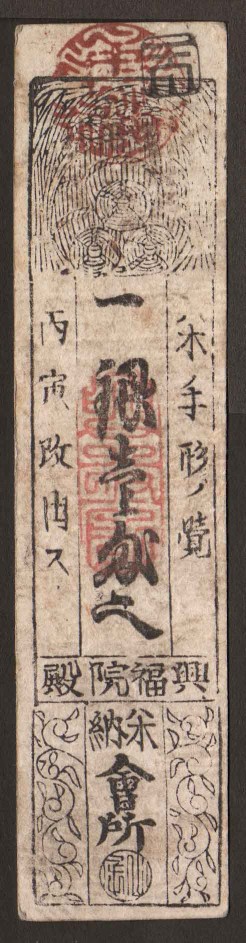 米手形ノ覚
一銀壹匁也
丙寅改出ス
興福院殿
米納
會所